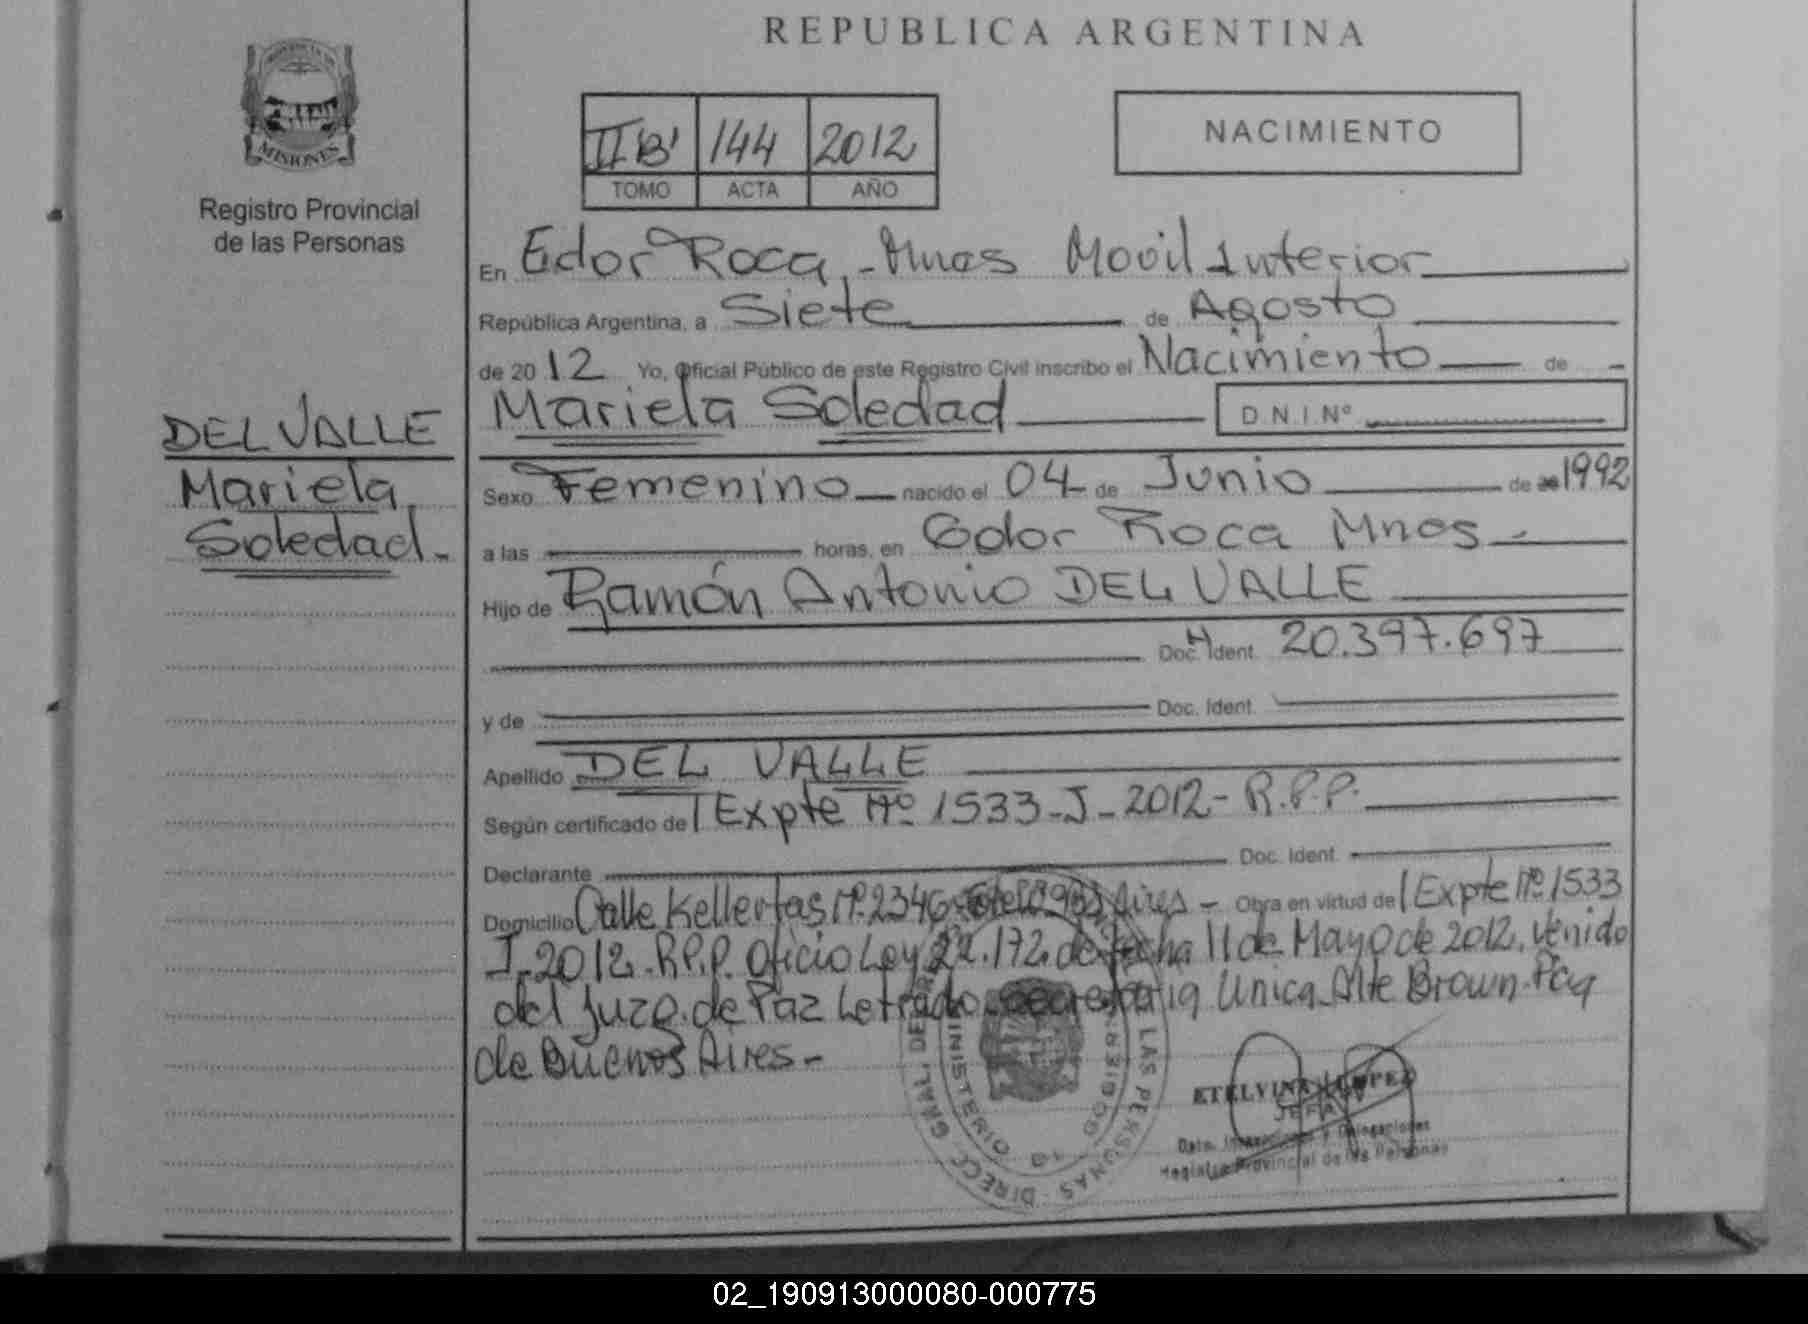 REPUBLICA ARGENTINA
PROVINCIA DE
MISIONES
Registro Provincial
de las Personas
II "B" 144 2012
TOMO ACTA AÑO
NACIMIENTO
En Edor Roca - Mnes Movil Interior
República Argentina, a Siete de Agosto
de 2012 Yo, Oficial Público de este Registro Civil inscribo el Nacimiento de
Mariela Soledad D.N.I.Nº
DEL VALLE
Mariela
Soledad.-
Sexo Femenino nacido el 04 de Junio de 1992
a las horas, en Gdor Roca Mnes
Hijo de Ramón Antonio DEL VALLE
Doc. Ident. 20.397.697
y de Doc. Ident.
Apellido DEL VALLE
Según certificado de Expte Nº 1533-J-2012- R.P.P.
Declarante Doc. Ident.
Domicilio Calle Kellertas Nº 2346 Aires - Obra en virtud de Expte Nº 1533
J-2012-R.P.P. Oficio Ley 22.172 de fecha 11 de Mayo de 2012, venido
del Juzg. de Paz Letrado secretaria Unica Alte Brown-Pcia
de Buenos Aires-
DIRECC. GRAL. DE LAS PERSONAS
MINISTERIO DE GOBIERNO
ETELVINA LOPEZ
JEFA
Dpto. Inspecciones y Delegaciones
Registro Provincial de las Personas
02_190913000080-000775